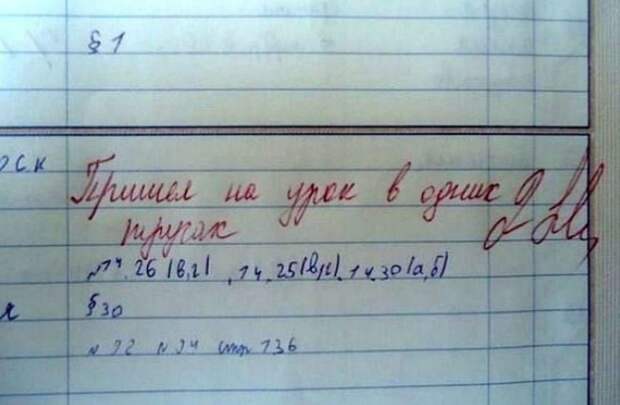 § 1
оск
Пришел на урок в одних
трусах
№14.26(в,г), 14.25(в,г), 14.30(а,б)
§ 30
стр 136